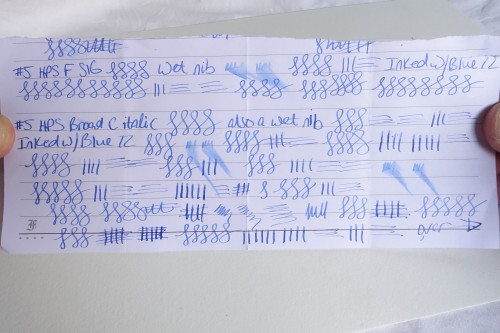 #5 HPS F SIG Wet nib Inked w/Blue 72
#5 HPS Broad C italic also a wet nib
Inked w/Blue 72
over